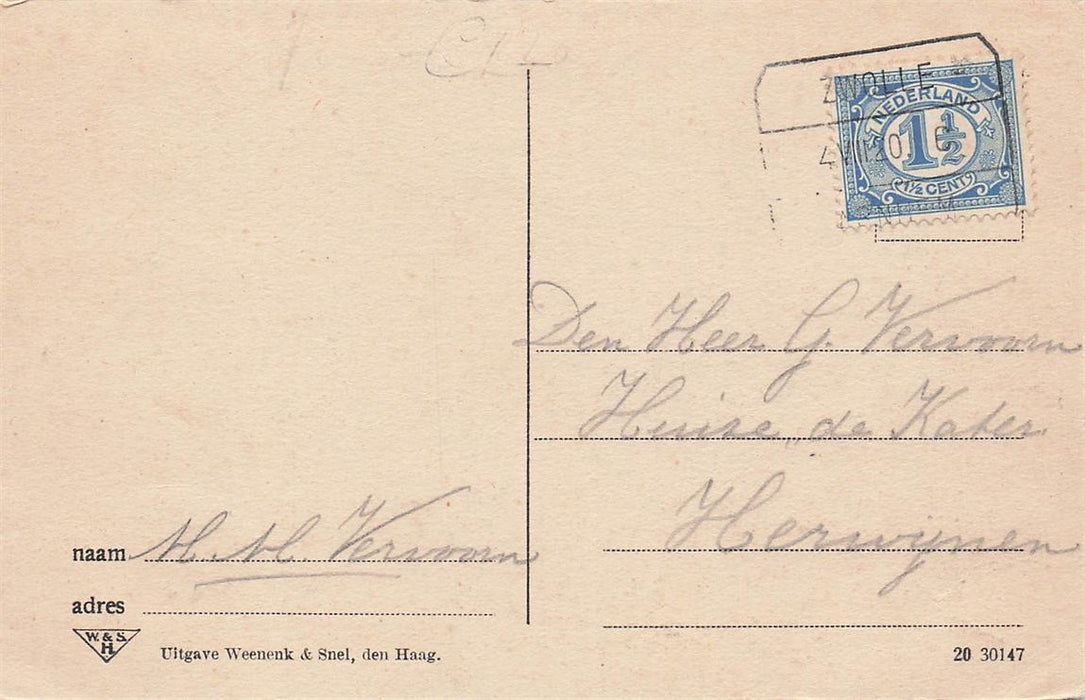 ZWOLLE
4 VIII 20
NEDERLAND
1½
1½ CENT
Den Heer G. Vervoorn
Huize „de Kater
Herwijnen
naam M. M. Vervoorn
adres
W. & S.
H.
Uitgave Weenenk & Snel, den Haag.
20 30147